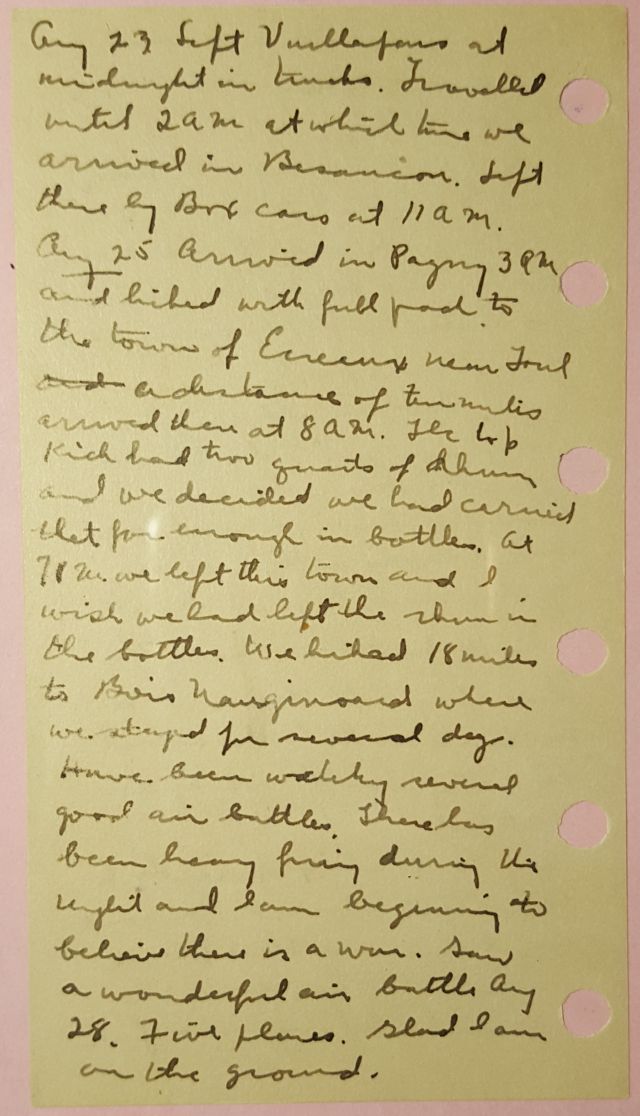 Aug 23 Left Vuillafans at
midnight in trucks. Travelled
until 2 AM at which time we
arrived in Besancon. Left
there by Box cars at 11 A M.
Aug 25 Arrived in Pagny 3 PM
and hiked with full pack to
the town of near Toul
and a distance of ten miles
arrived there at 8 A M. The top
Kick had two quarts of Rhum
and we decided we had carried
that far enough in bottles. At
we left this town and I
wish we had left the rhum in
the bottles. We hiked 18 miles
to Bois where
we stayed for several days.
Have been watching several
good air battles. There has
been heavy firing during the
night and I am beginning to
believe there is a war. Saw
a wonderful air battle Aug
28. Five planes. Glad I am
on the ground.